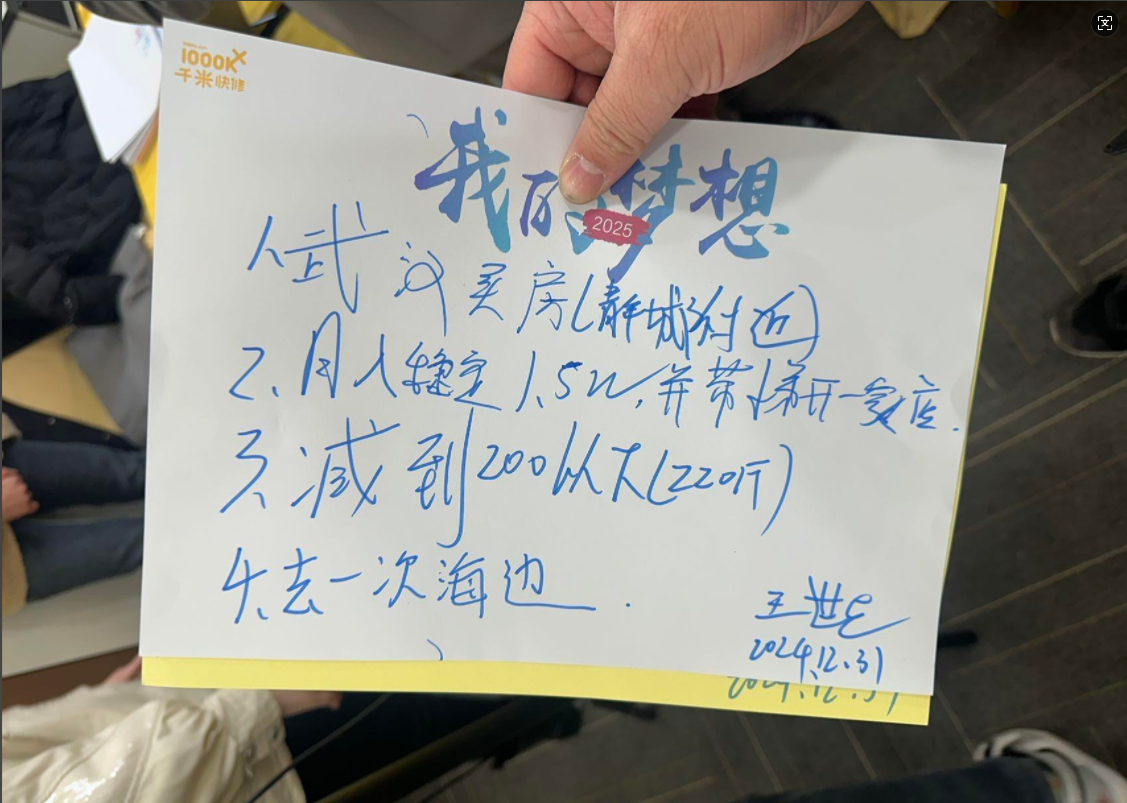 1000K
千米快修
我的梦想
2025
1、武汉买房(青城附近)
2、月入稳定1.5W,并带徒弟开一家店.
3、减到200以下(220斤)
4、去一次海边.
王世
2024.12.31
2024.12.31